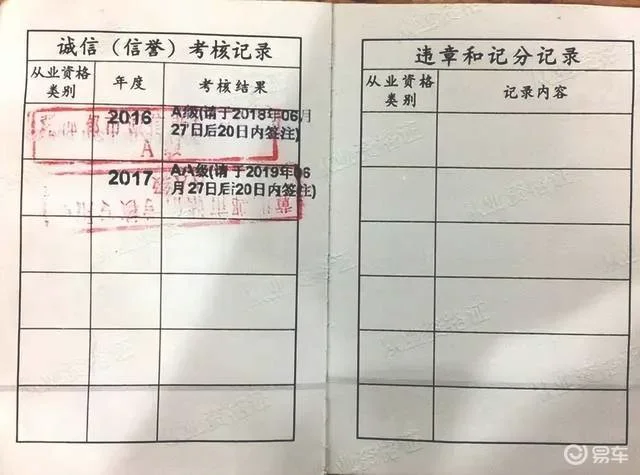 诚信（信誉）考核记录
从业资格
类别
年度
考核结果
2016
A级(请于2018年06月
27日后20日内签注)
A
2017
AA级(请于2019年06
月27日后20日内签注)
违章和记分记录
从业资格
类别
记录内容
从业资格证
易车